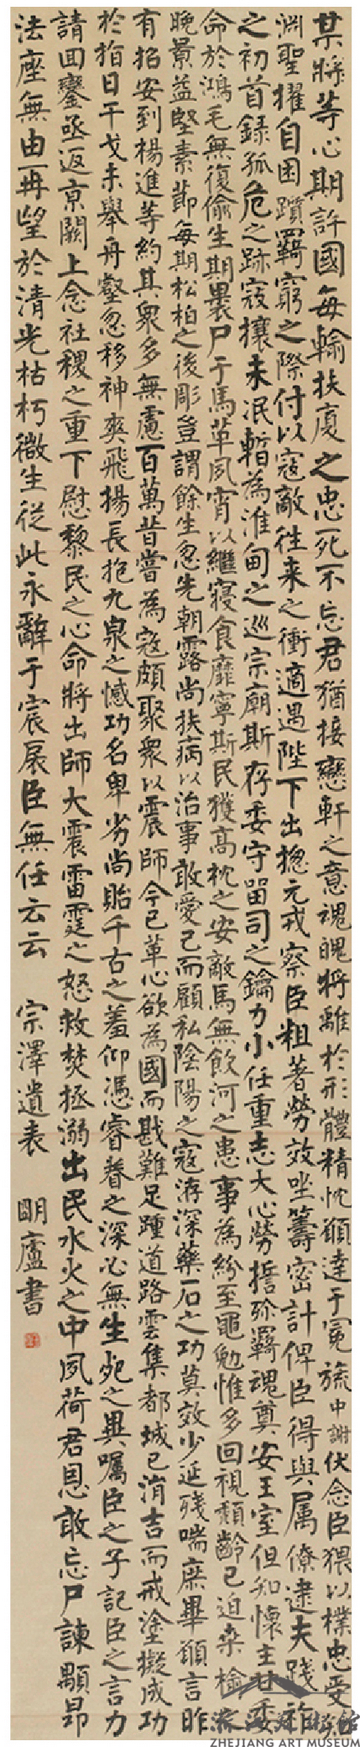 某將等心期許國每輸扶廈之忠死不忘君猶接戀軒之意魂魄將離於形體精忱願達于冕旒中謝伏念臣猥以樸忠受知
淵聖擢自困躓羈窮之際付以寇敵往来之衝適遇陛下出摠元戎察臣粗著勞效坐籌密計俾臣得與属僚逮夫踐祚
之初首錄孤危之跡寇攘未泯暫為淮甸之巡宗廟斯存委守畱司之鑰力小任重志大心勞誓殄羈魂奠安王室但知懷主甘委
命於鴻毛無復偷生期裹尸于馬革夙宵以繼寝食靡寧斯民獲高枕之安敵馬無飲河之患事為紛至黽勉惟多回視頽齡已迫桑榆之
晚景益堅素節每期松柏之後彫豈謂餘生忽先朝露尚扶病以治事敢愛己而顧私陰陽之寇洊深藥石之功莫效少延殘喘庶畢願言昨
有招安到楊進等約其衆多無慮百萬昔嘗為寇頗聚衆以震師今已革心欲為國而戡難足踵道路雲集都城已消吉而戒塗擬成功
於指日干戈未舉舟壑忽移神爽飛揚長抱九泉之憾功名卑劣尚貽千古之羞仰憑睿眷之深必無生死之異囑臣之子記臣之言力
請回鑾亟返京闕上念社稷之重下慰黎民之心命將出師大震雷霆之怒救焚拯溺出民水火之中夙荷君恩敢忘尸諫顒昂
法座無由再望於清光枯朽微生從此永辭于宸扆臣無任云云 宗澤遺表 明廬書
浙江美術館
ZHEJIANG ART MUSEUM